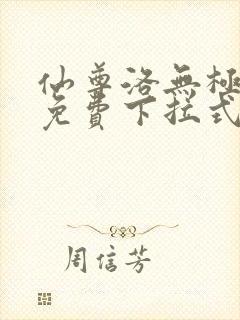 仙尊洛無極
免費下拉式
周信芳